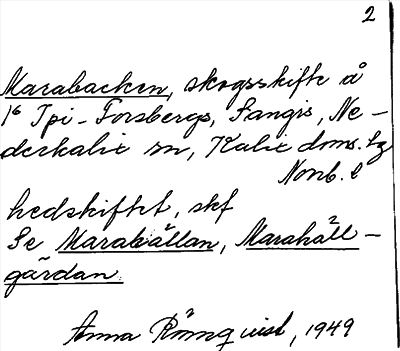 2
Marabacken, skogsskifte å
16 Tpi - Forsbergs, Sangis, Ne-
derkalix sn, Kalix doms. tg
Norrb. l
hedskiftet, skf
Se Marakällan, Marahäll-
gärdan.
Anna Rönnquist, 1949